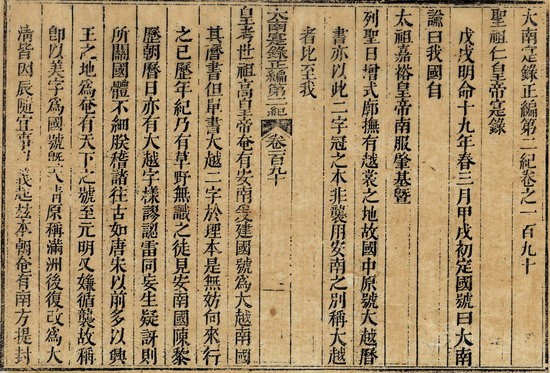 大南寔錄正編第二紀卷之一百九十
聖祖仁皇帝寔錄
戊戌明命十九年春三月甲戌初定國號曰大南
諭曰我國自
太祖嘉裕皇帝南服肇基曁
列聖日增式廓撫有越裳之地故國中原號大越曆
書亦以此二字冠之本非襲用安南之別稱大越
者比至我
大南寔錄正編第二紀 卷百九十
皇考世祖高皇帝奄有安南爰建國號爲大越南國
其曆書但單書大越二字於理本是無妨向來行
之已歷年紀乃有草野無識之徒見安南國陳黎
歷朝曆日亦有大越字樣謬認雷同妄生疑訝則
所關國體不細朕稽諸往古如唐宋以前多以興
王之地爲奄有天下之號至元明又嫌循襲故稱
卽以美字爲國號曁大清原稱滿洲後復改爲大
清皆因辰隨宜事義起茲本朝奄有南方提封